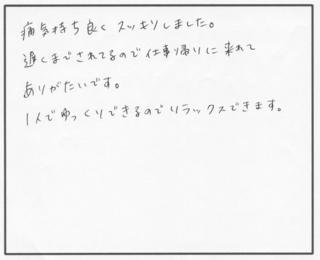 痛気持ち良くスッキリしました。
遅くまでされてるので仕事帰りに来れて
ありがたいです。
1人でゆっくりできるのでリラックスできます。